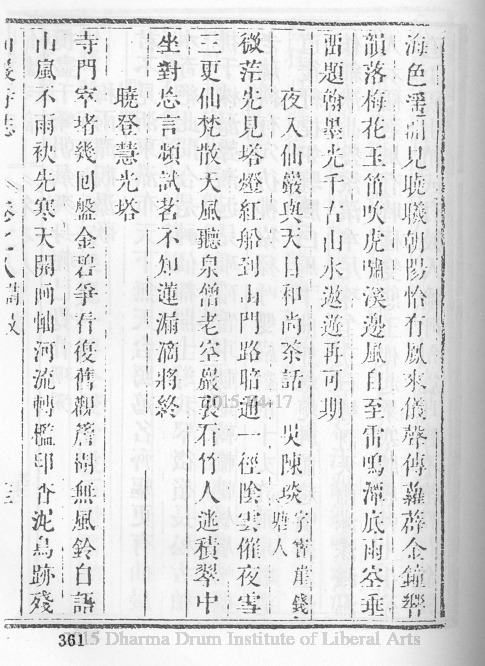 海色澄涵見曉曦朝陽恰有鳳來儀聲傳蘿薜金鐘響
韻落梅花玉笛吹虎嘯溪邊風自至雷鳴潭底雨空垂
留題翰墨光千古山水遨遊再可期
夜入仙巖與天目和尚茶話 吳陳琰字寶崖錢塘人
微茫先見塔燈紅船到山門路暗通一徑陰雲催夜雪
三更仙梵散天風聽泉僧老空巖裏石竹人逃積翠中
坐對忘言頻試茗不知蓮漏滴將終
曉登慧光塔
寺門窣堵幾回盤金碧爭看復舊觀簷樹無風鈴自語
山嵐不雨袂先寒天開画軸河流轉檻印香泥鳥跡殘
仙巖寺志 卷之八
361
2015-04-17
15 Dharma Drum Institute of Liberal Arts